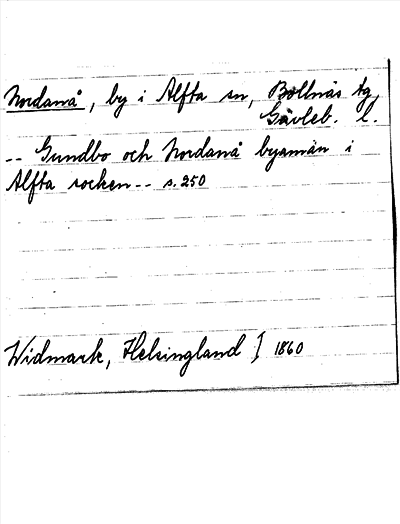 Nordanå, by i Alfta sn, Bollnäs tg,
Gävleb. l.
-- Gundbo och Nordanå byamän i
Alfta socken -- s. 250
Widmark, Helsingland I 1860